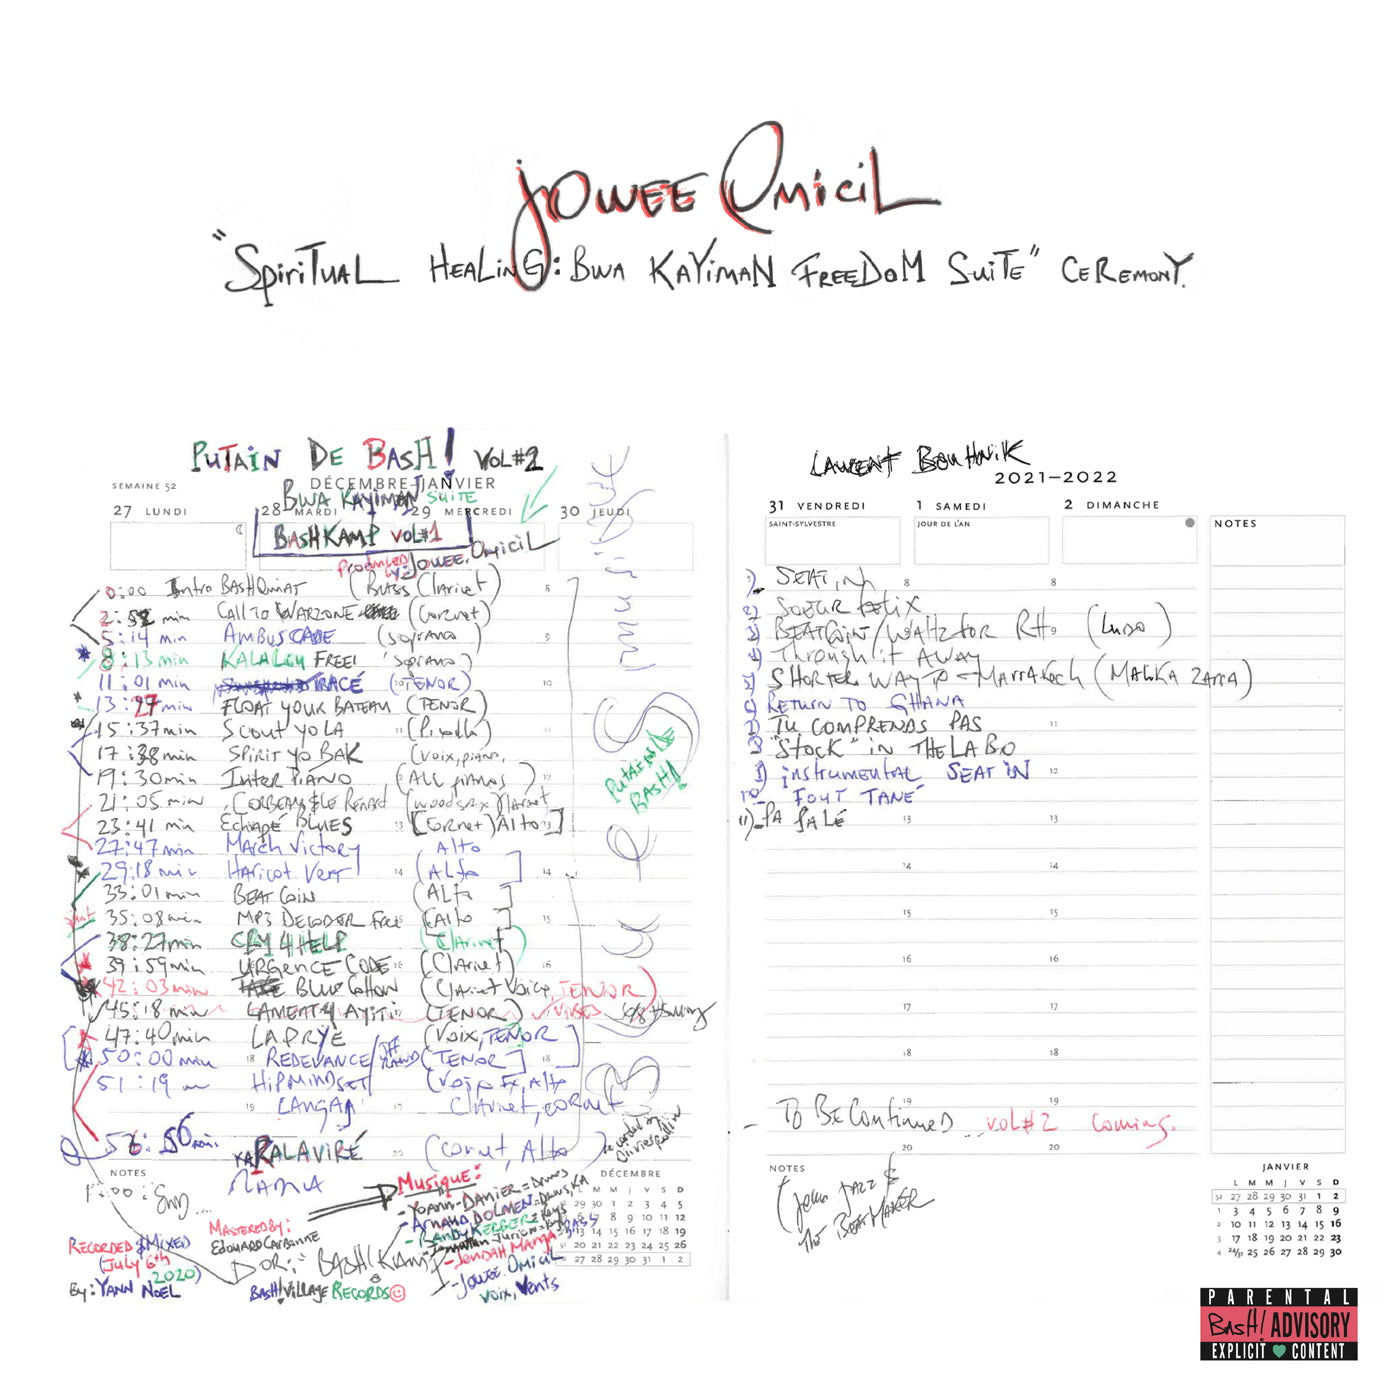 JOWEE OMICIL
"SPIRITUAL HEALING: BWA KAYIMAN FREEDOM SUITE" CEREMONY.
PUTAIN DE BASH! VOL#2
SEMAINE 52
DÉCEMBRE-JANVIER
BWA KAYIMAN SUITE
27 LUNDI 28 MARDI 29 MERCREDI 30 JEUDI
BASHKAMP VOL#1
Produced by: JOWEE OMICIL
0:00 Intro BASHQUIAT (BASS Clarinet)
2:52 min CALL TO WARZONE (Cornet)
5:14 min AMBUSCADE (Soprano)
8:13 min KALALOU FREE! (Soprano)
11:01 min TRACÉ (TENOR)
13:27 min FLOAT YOUR BATEAU (TENOR)
15:37 min SCOUT YO LA (Piccolo)
17:38 min SPIRIT YO BAK (voix, piano,
19:30 min INTER PIANO (ALL pianos)
21:05 min CORBEAU & Le Renard
23:41 min Echapé BLUES [Cornet) Alto]
27:47 min March Victory Alto
29:18 min Haricot Vert (Alto]
33:01 min BEAT COIN (Alto]
35:08 min MP3 DECODER Free (Alto]
38:27 min CRY 4 HELP (Clarinet)
39:59 min URGENCE CODE (Clarinet)
42:03 min BLUE COTTON (Clarinet Voice, TENOR)
45:18 min LAMENT 4 AYITI (TENOR)
47:40 min LAPRYÈ (Voix, TENOR
50:00 min REDEVANCE/ (TENOR]
51:19 m HIPMINDSET/ (Voix Fx, Alto
LANGAJ Clarinet, cornet
56 min KARALAVIRÉ (Cornet, Alto)
NOTES
MASTERED BY:
Edouard Carbonne
RECORDED & MIXED
(July 6th
2020)
By: YANN NOEL
BASH! VILLAGE RECORDS ©
Musique:
- Yoann DANIER = Drums
- Arnaud DOLMEN = Drums, KA
- RANDY KERBER = Keys
- Jonathan Jurion =
- JENDAH Manga = BASS
- Jowee Omicil
voix, Vents
PUTAIN DE
BASH!
DÉCEMBRE
L M M J V S D
LAURENT BOUHNIK
2021–2022
31 VENDREDI 1 SAMEDI 2 DIMANCHE
SAINT-SYLVESTRE JOUR DE L'AN NOTES
1) SEAT, in
2) SOEUR FELIX
3) BEATCOIN/WALTZ FOR RH (Ludo)
4) Through it AWAY
5) SHORTER WAY TO MARRAKECH (MALIKA ZARRA)
6) RETURN TO GHANA
7) TU COMPRENDS PAS
8) "STOCK" IN THE LABO
9) instrumental SEAT IN
10- FOUT TANÉ
11)- PA PALÉ
- To BE Continued ... vol#2 coming.
NOTES
(John JAZZ &
The BEATMAKER
JANVIER
L M M J V S D
52 27 28 29 30 31 1 2
1 3 4 5 6 7 8 9
2 10 11 12 13 14 15 16
3 17 18 19 20 21 22 23
4 24/31 25 26 27 28 29 30
PARENTAL
BASH! ADVISORY
EXPLICIT CONTENT